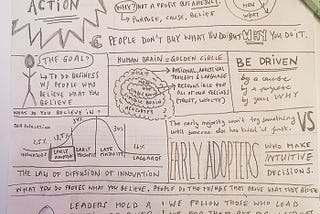 ACTION
WHY? NOT A PROFIT BUT A RESULT!
↳ PURPOSE, CAUSE, BELIEF
WHY
HOW
WHAT
PEOPLE DON'T BUY WHAT YOU DO BUT WHY YOU DO IT.
THE GOAL?
↳ TO DO BUSINESS
W/ PEOPLE WHO
BELIEVE WHAT YOU
BELIEVE
WHAT DO YOU BELIEVE IN?
HUMAN BRAIN = GOLDEN CIRCLE
RATIONAL, ANALYTICAL
THOUGHT & LANGUAGE
RESPONSIBLE FOR
ALL OF OUR FEELINGS
(TRUST, LOYALTY)
BE DRIVEN
by a cause
by a purpose
by your WHY
2,5%
13,5%
34%
34%
INNOVATORS
EARLY
ADOPTERS
EARLY
MAJORITY
LATE
MAJORITY
LAGGARDS
THE LAW OF DIFFUSION OF INNOVATION
The early majority won't try something
until someone else has tried it first.
VS
EARLY ADOPTERS
WHO MAKE
INTUITIVE
DECISIONS.
WHAT YOU DO PROVES WHAT YOU BELIEVE. PEOPLE DO THE THINGS THAT PROVE WHAT THEY BELIEVE
LEADERS HOLD A
WE FOLLOW THOSE WHO LEAD